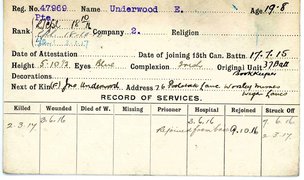 Reg. No. 47969 Name Underwood E. Age 19-8
Pte.
Rank Company 2. Religion
Date of Attestation Date of joining 15th Can. Battn. 17.7.15
Height 5.10½ Eyes Blue Complexion Original Unit 37 Batt
Decorations Bookkeeper
Next of Kin Jno Underwood Address 76 Lane, Worsley Mesnes
Wigan Lancs
RECORD OF SERVICES.
Killed Wounded Died of W. Missing Prisoner Hospital Rejoined Struck Off
2.3.17 3.6.16 3.6.16 9.10.16 4.6.16
Rejoined from base